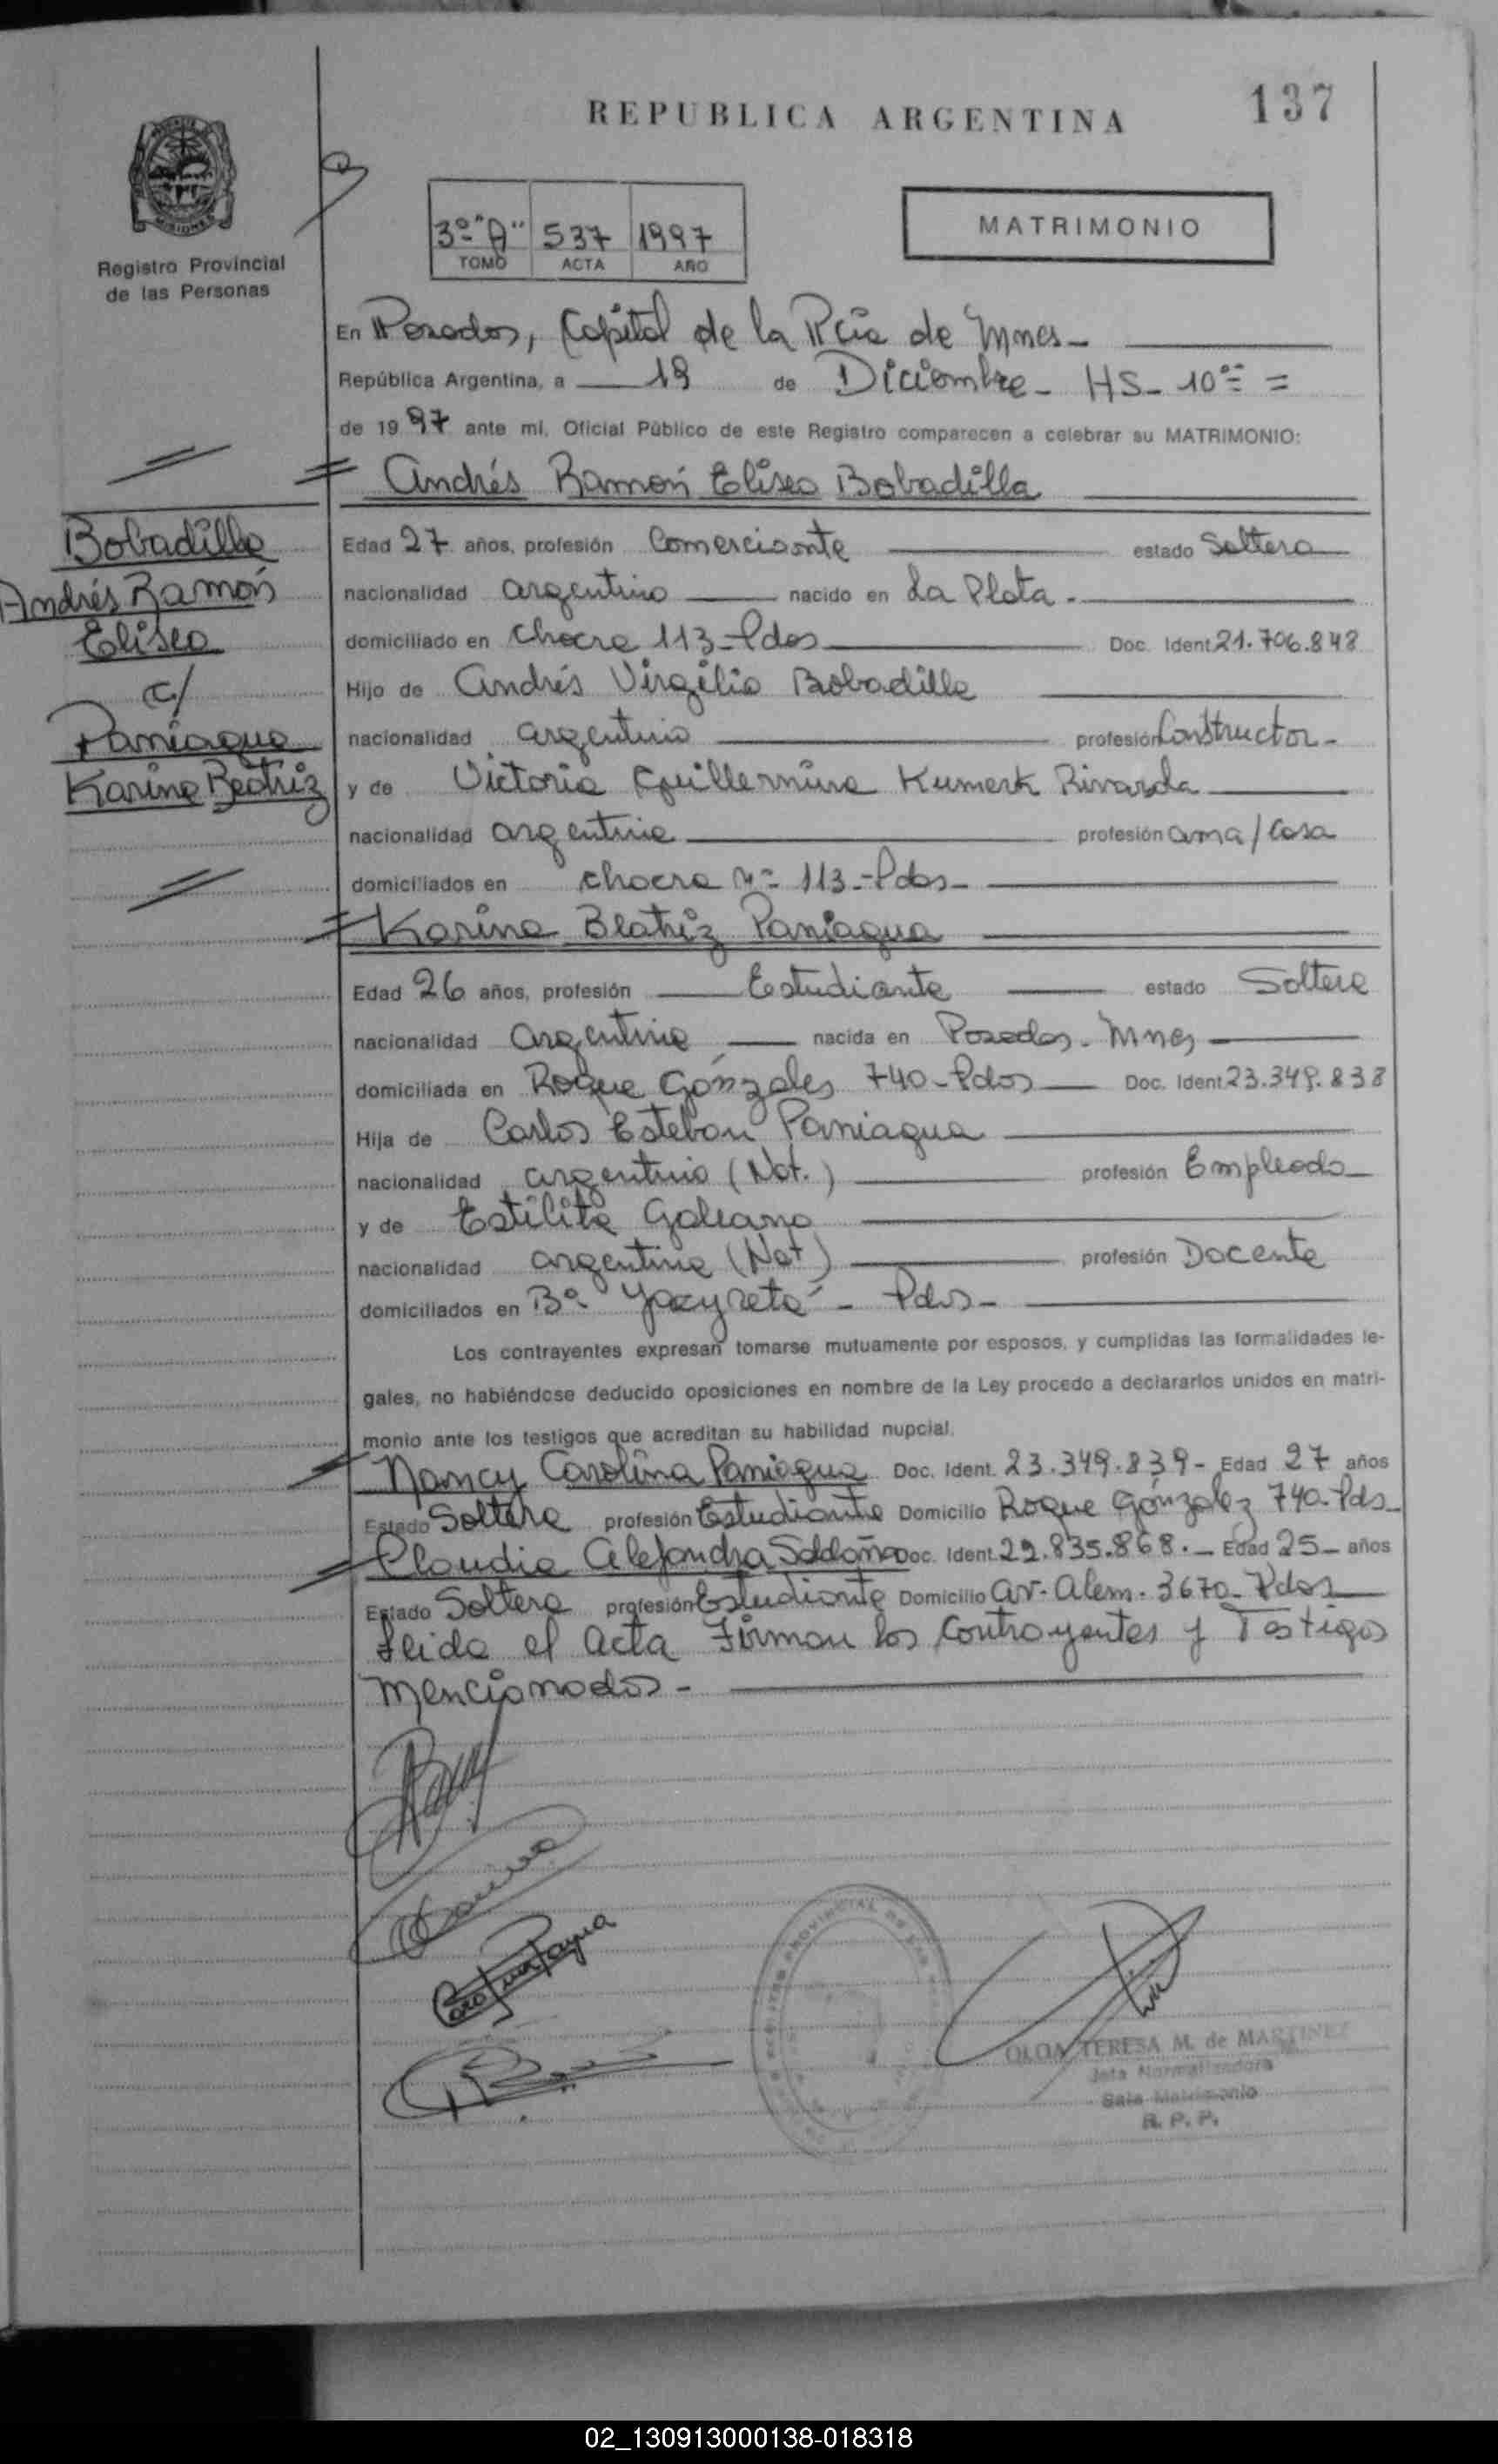 REPUBLICA ARGENTINA
137
Registro Provincial
de las Personas
3º "A" 537 1997
TOMO ACTA AÑO
MATRIMONIO
En Posadas, Capital de la Pcia de Mnes-
República Argentina, a 19 de Diciembre- HS- 10ºº =
de 1997 ante mi, Oficial Público de este Registro comparecen a celebrar su MATRIMONIO:
Andrés Ramón Eliseo Bobadilla
Bobadilla
Andrés Ramón
Eliseo
c/
Paniagua
Karina Beatriz
Edad 27 años, profesión Comerciante estado Soltero
nacionalidad argentino nacido en La Plata.
domiciliado en Chacra 113-Pdas Doc. Ident 21.706.848
Hijo de Andrés Virgilio Bobadilla
nacionalidad argentino profesión Constructor-
y de Victoria Guillermina Kumerk Rivarola
nacionalidad argentina profesión ama/Casa
domiciliados en chacra Nº 113-Pdas-
Karina Beatriz Paniagua
Edad 26 años, profesión Estudiante estado Soltera
nacionalidad Argentina nacida en Posadas-Mnes
domiciliada en Roque Gónzales 740-Pdas Doc. Ident 23.349.838
Hija de Carlos Esteban Paniagua
nacionalidad argentino (Nat.) profesión Empleado
y de Estilita Galeano
nacionalidad argentina (Nat) profesión Docente
domiciliados en Bº Yacyretá - Pdas-
Los contrayentes expresan tomarse mutuamente por esposos, y cumplidas las formalidades le-
gales, no habiéndose deducido oposiciones en nombre de la Ley procedo a declararlos unidos en matri-
monio ante los testigos que acreditan su habilidad nupcial.
Nancy Carolina Paniagua Doc. Ident. 23.349.839- Edad 27 años
Estado Soltera profesión Estudiante Domicilio Roque Gónzalez 740-Pds-
Claudia Alejandra Saldaña Doc. Ident. 22.835.868.- Edad 25- años
Estado Soltera profesión Estudiante Domicilio av. Alem. 3670-Pdas
Leida el acta Firman los Contrayentes y Testigos
mencionados-
OLGA TERESA M. de MARTINEZ
Jefa Normalizadora
Sala Matrimonio
R. P. P.
02_130913000138-018318